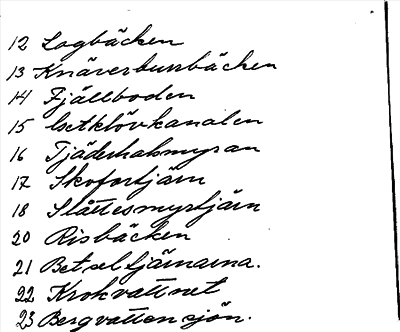 12 Lagbäcken
13 Knäverbursbäcken
14 Fjällboden
15 kanalen
16 Tjäderhalsmyran
17 Skofortjärn
18 Slåttesmyrtjärn
20 Risbäcken
21 Betseltjärnarna.
22 Krokvattnet
23 Bergvattensjön.